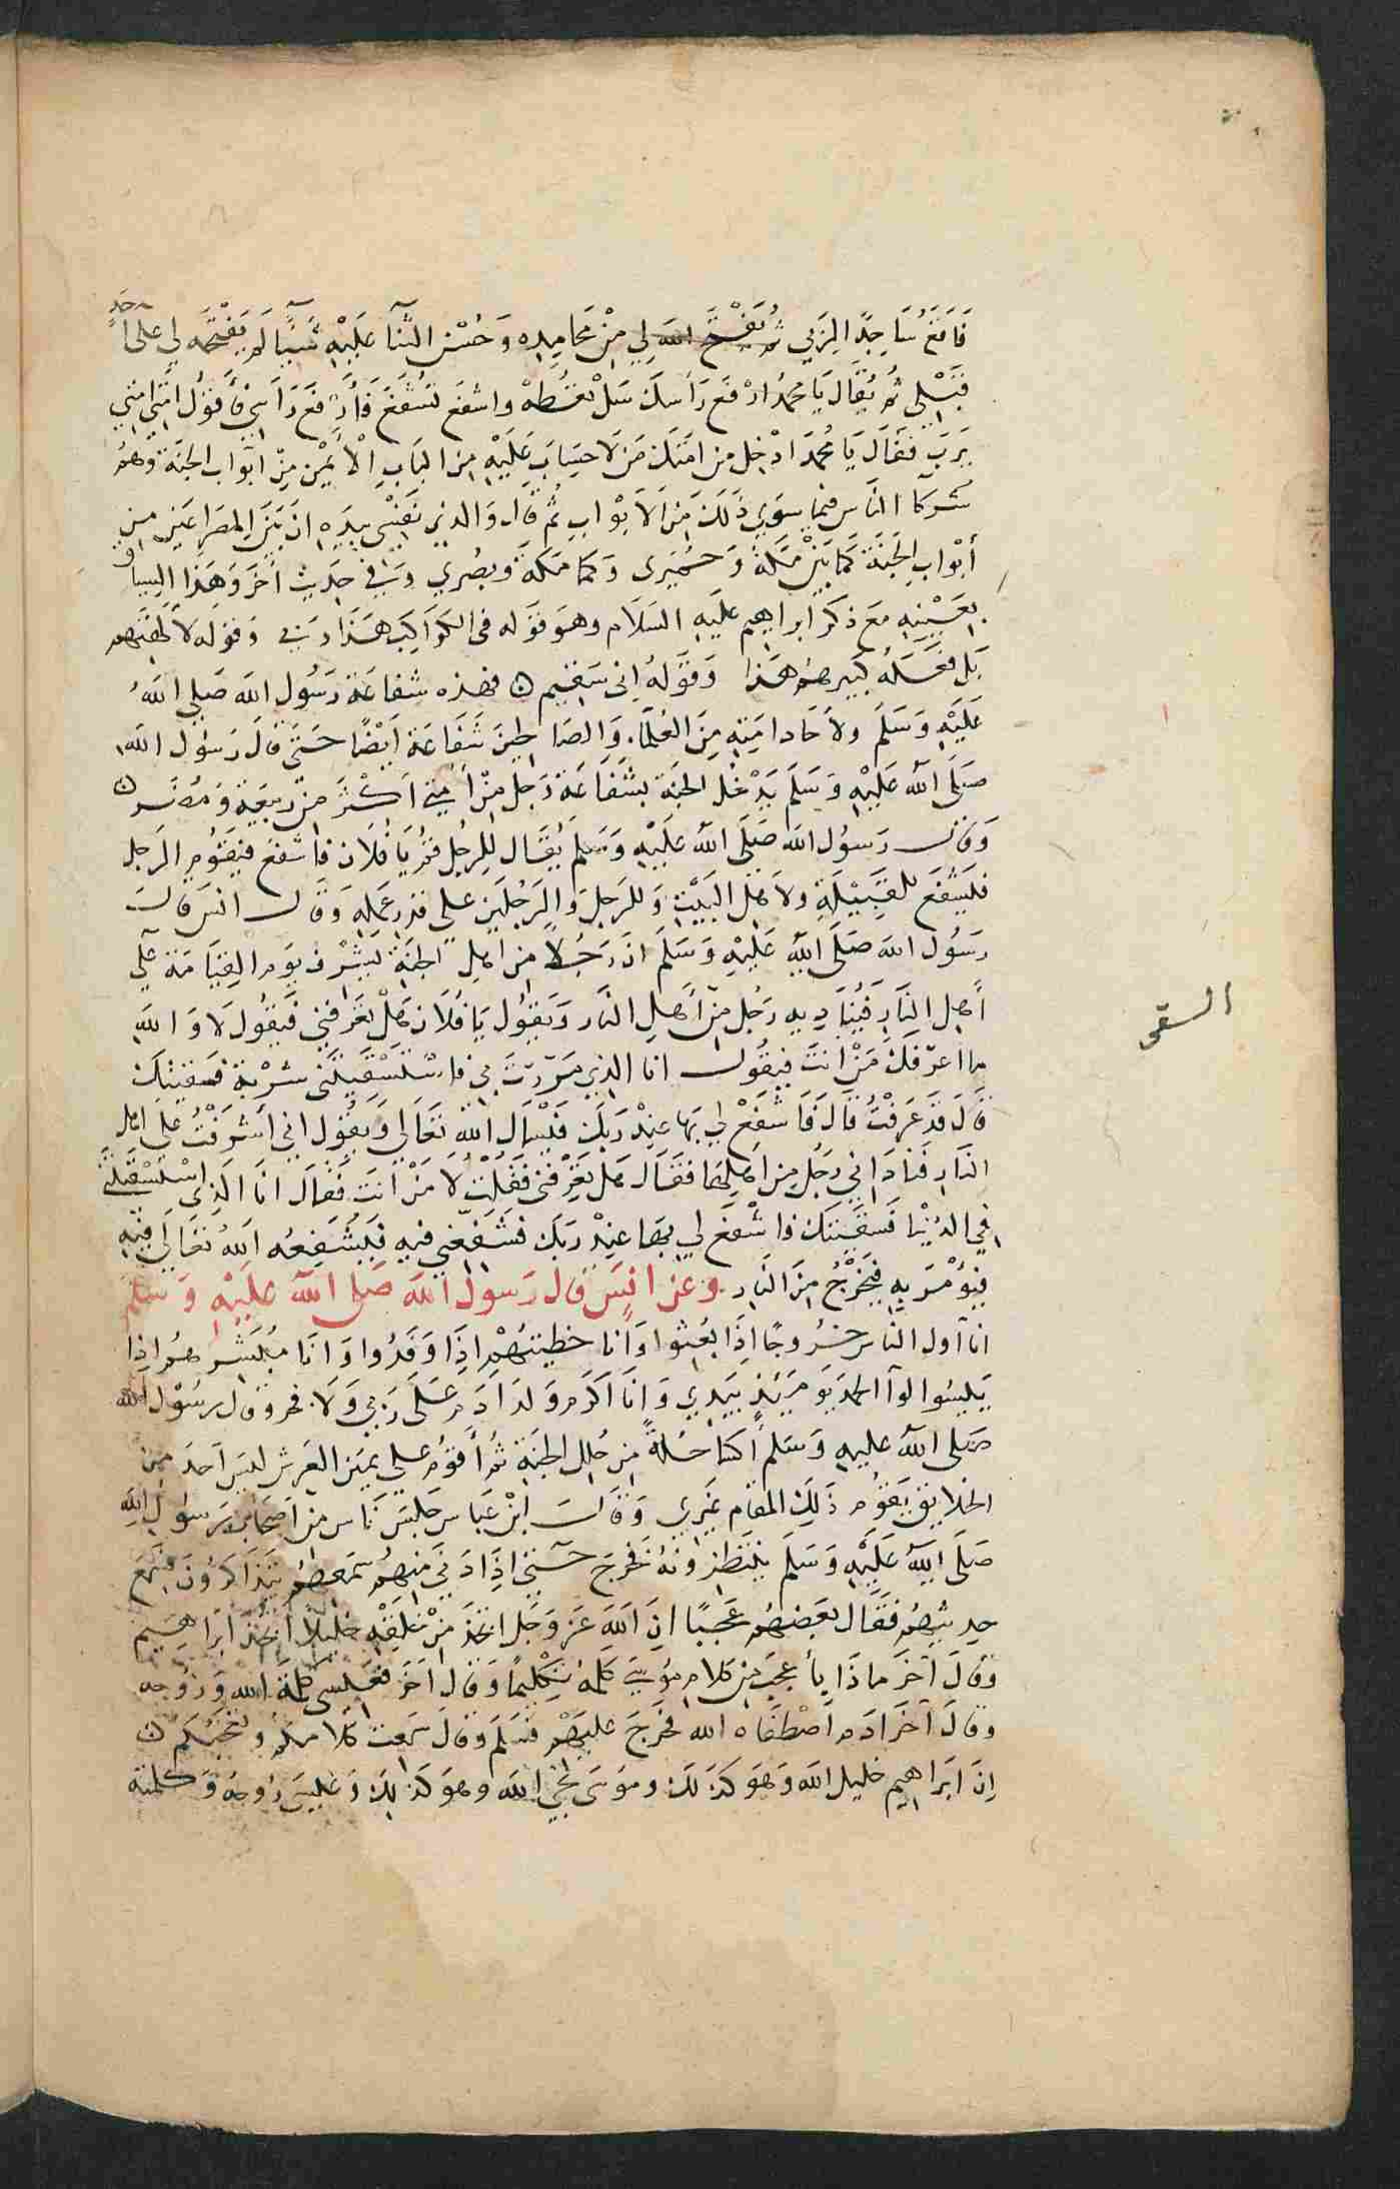 فَاَقَعُ سَاجِدًا لِرَبِي ثم يَفْتَحُ الله لِي مِنْ مَحامِدِه وَحُسْن الثَّنَآءِ عَلَيْهِ شَيْئًا لَم يَفْتَحْه لِي على احَدٍ
قَبْلِي ثُم يُقَال يَا مُحمدُ ارْفَع رَأسَكَ سَلْ تُعْطَهْ واشفع تُشَفَّعْ فَأرْفَعَ رَأسِي فَأقولُ امتي امتي
يَرَبِّ فَقَالَ يَا مُحَمَد ادْخِل مِن امَتِكَ مَن لَا حِسَابَ عَلَيْهِ مِن البَابِ الْأيْمَن مِنْ ابْوَاب الجنَة وَهُمْ
شُركَآ الناس فيمَا سِوَي ذَلَكَ مِنَ الاَبْوَابِ ثُم قَال وَالذِي نَفْسِي بِيَدِهِ انَ بَيْنَ المِصْرَاعَينِ مِن
أَبْوَابِ الجَنَة كمَا بَيْن مَكَة وَحِمْيَرى وَكمَا مَكة وبُصْرَي وَفي حَدِيث أخَرَ وَهَذا السِياق
بِعَيْنِهِ مَعَ ذكَر ابراهيم عليَهِ السَلَام وهوَ قوَله فى الكَوَاكِب هَذَا رَبي وَقوله لآلِهَتهم
بَل فَعَلَهُ كَبِيرهم هَذا وَقوَلهُ انِى سَقيم ن فهذه شِفاعَة رَسُول الله صَلي اللَهُ
عَلَيْهِ وَسَلَم ولآحَاد امَتِهِ مِنَ العُلَمَآ. وَالصَالحِينَ شَفَاعَة اَيْضًا حَتَى قَالَ رَسُول الله
صَلَى الله عَلَيْهِ وَسَلَم يَدْخُل الجنَة بشَفَاعَة رَجل مِنْ أمتي اَكْثَرَ مِنْ ربيعَة وَمُضَر ن
وَقالَ رَسُول الله صَلَى اللَهُ عَلَيْهِ وَسَلَم يُقَال للِرجُل قُمْ يَا فُلَان فاشفع فيَقوُم الرَجل
فيَشْفَعَ للقَبِيْلَةِ ولاَهْل البَيْتِ وَللرَجلِ وَالرَجُلَين عَلي قدَرِ عَمَلِهِ وَقَالَ انس قالَ
رَسُول الله صَلَى اللَهُ عَلَيْهِ وَسَلَم انَ رَجُلاً مِن اهْلِ الجنَة ليُشْرِف يوَم القِيَامَة عَلَى
أهِل النَارِ فَيُنَادِيِهِ رَجُل مِنْ أهلِ النَار وَيَقُول يَا فُلاَن هَلْ تَعْرفني فَيقُول لَا وَاللَه
ما اعرفكَ مَنْ انتَ فيقُول انا الذِي مَرَرتَ بِي فاسْتَسْقَيتَنى شرْبَة فسَقَيْتكَ
قَالَ قدَ عَرَفْتُ قَالَ فَاشْفَعْ لي بهَا عِنْد رَبَكَ فَيَسْأل اللَهَ تعَالي وَيقُول انِي أشرَفْتُ عَلَى اهْل
النَارِ فنادَاني رَجُل مِن اهْلِهَا فقَالَ هَل تَعْرفنى فقُلتُ لا مَنْ انتَ فَقَالَ انَا الذِي اسْتَسْقيتَني
في الدُنْيَا فَسقَيْتكَ فاشْفَعَ لي بهَا عِنْد رَبكَ فشَفِعْنى فيهِ فَيُشَفِعُه اللَهُ تعَالَي فيْهِ
فيُؤْمَر بِهِ فيَخْرُجُ مِنَ النَار. وعَن انسَ قال رَسُول الله صَلى اللَه عليَهِ وَسَلم
انا اول الناس خرُوجًا اِذَا بُعِثوا وَانا خطيبهُمْ اِذَا وَفَدُوا وَانَا مُبَشِرهُم اِذا
يَئِسُوا لوآ الحمد يَوْمَئِذٍ بِيَدِي وَانا اكَرَم وَلَد آدَم عَلَى رَبي وَلَا فخر وقال رسُول الله
صَلى اللَهُ عليهِ وَسَلم أُكسَا حُلةً مِن حُلل الجنَة ثمَ أَقوُم عَلي يَمِين العَرش لَيسَ اَحَد من
الخلايق يَقوُم ذَلِكَ المقَام غَيْري وَقَالَ ابْن عَبَاس جَلسَ نَاس مِن اَصحَاب رَسوُل اللَهِ
صَلَى اللَهُ عَلَيْهِ وَسَلَم يَنْتَظِرونَهُ فخَرجَ حَتى اذِا دَنَى مِنهُم سَمعَهُم يَتَذَاكَرُونَ فسَمِعَ
حَديثهُم فَقَال بَعْضهُم عَجَبًا انِ اللَهَ عَزَ وَجَل اتخَذَ مِنْ خَلْقِهِ خليلاً اتخَذَ ابَراهيم
وَقَالَ آخَر ماذَا بِأعْجَبَ مِن كلام موُسَى كَلمَهُ تَكْليمًا وَقال آخَرَ فعِيسَى كلمَة الله وَرُوحه
وَقالَ آخَر ادَم اصْطَفَاه الله فخَرَجَ عليَهْم فسَلَمَ وَقالَ سَمعت كلَامَكم وَتَعَجُبكم ن
إنَ ابَراهيم خليل الله وَهوَ كذَلكَ وموُسَى نجَيُّ الله وهوَ كذَلِكَ وَعيسَى رُوحُه وَكلمته
السقى